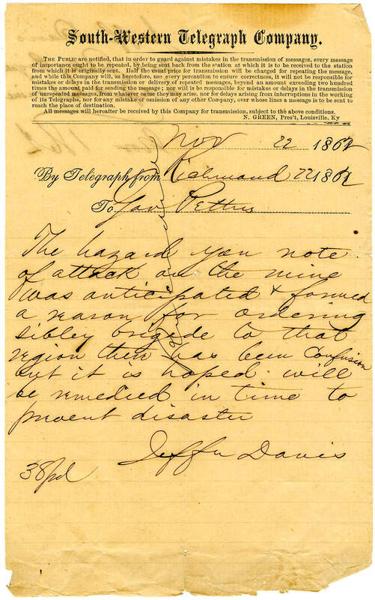 South-Western Telegraph Company.
THE PUBLIC are notified, that in order to guard against mistakes in the transmission of messages, every message
of importance ought to be repeated, by being sent back from the station at which it is to be received to the station
from which it is originally sent. Half the usual price for transmission will be charged for repeating the message,
and while this Company will, as heretofore, use every precaution to ensure correctness, will not be responsible for
mistakes or delays in the transmission or delivery of repeated messages, beyond an amount exceeding two hundred
times the amount paid for sending the message; nor will it be responsible for mistakes or delays in the transmission
of unrepeated messages, from whatever cause they may arise, nor for delays arising from interruptions in the working
of its Telegraphs, nor for any mistake or omission of any other Company, over whose lines a message is to be sent to
reach the place of destination.
All messages will hereafter be received by this Company for transmission, subject to the above conditions.
N. GREEN, Pres't, Louisville, Ky
Nov 22 1862
By Telegraph from Richmond 22 1862
To Gov Pettus
The hazard you note
of attack on the mine
was anticipated & formed
a reason for ordering
sibley brigade to that
region there has been Confusion
but it is hoped will
be remedied in time to
prevent disaster
Jeffn Davis
38 pd